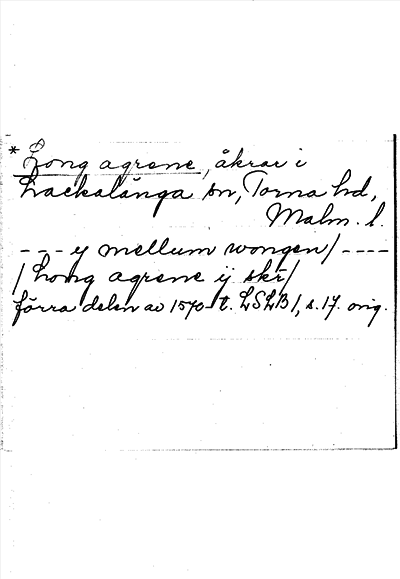 * Long agrene, åkrar i
Lackalänga sn, Torna hd,
Malm. l.
--- y mellum wongen/ ----
/ Long agrene ij skr/
förra delen av 1570-t. LSLB/, s. 17. orig.